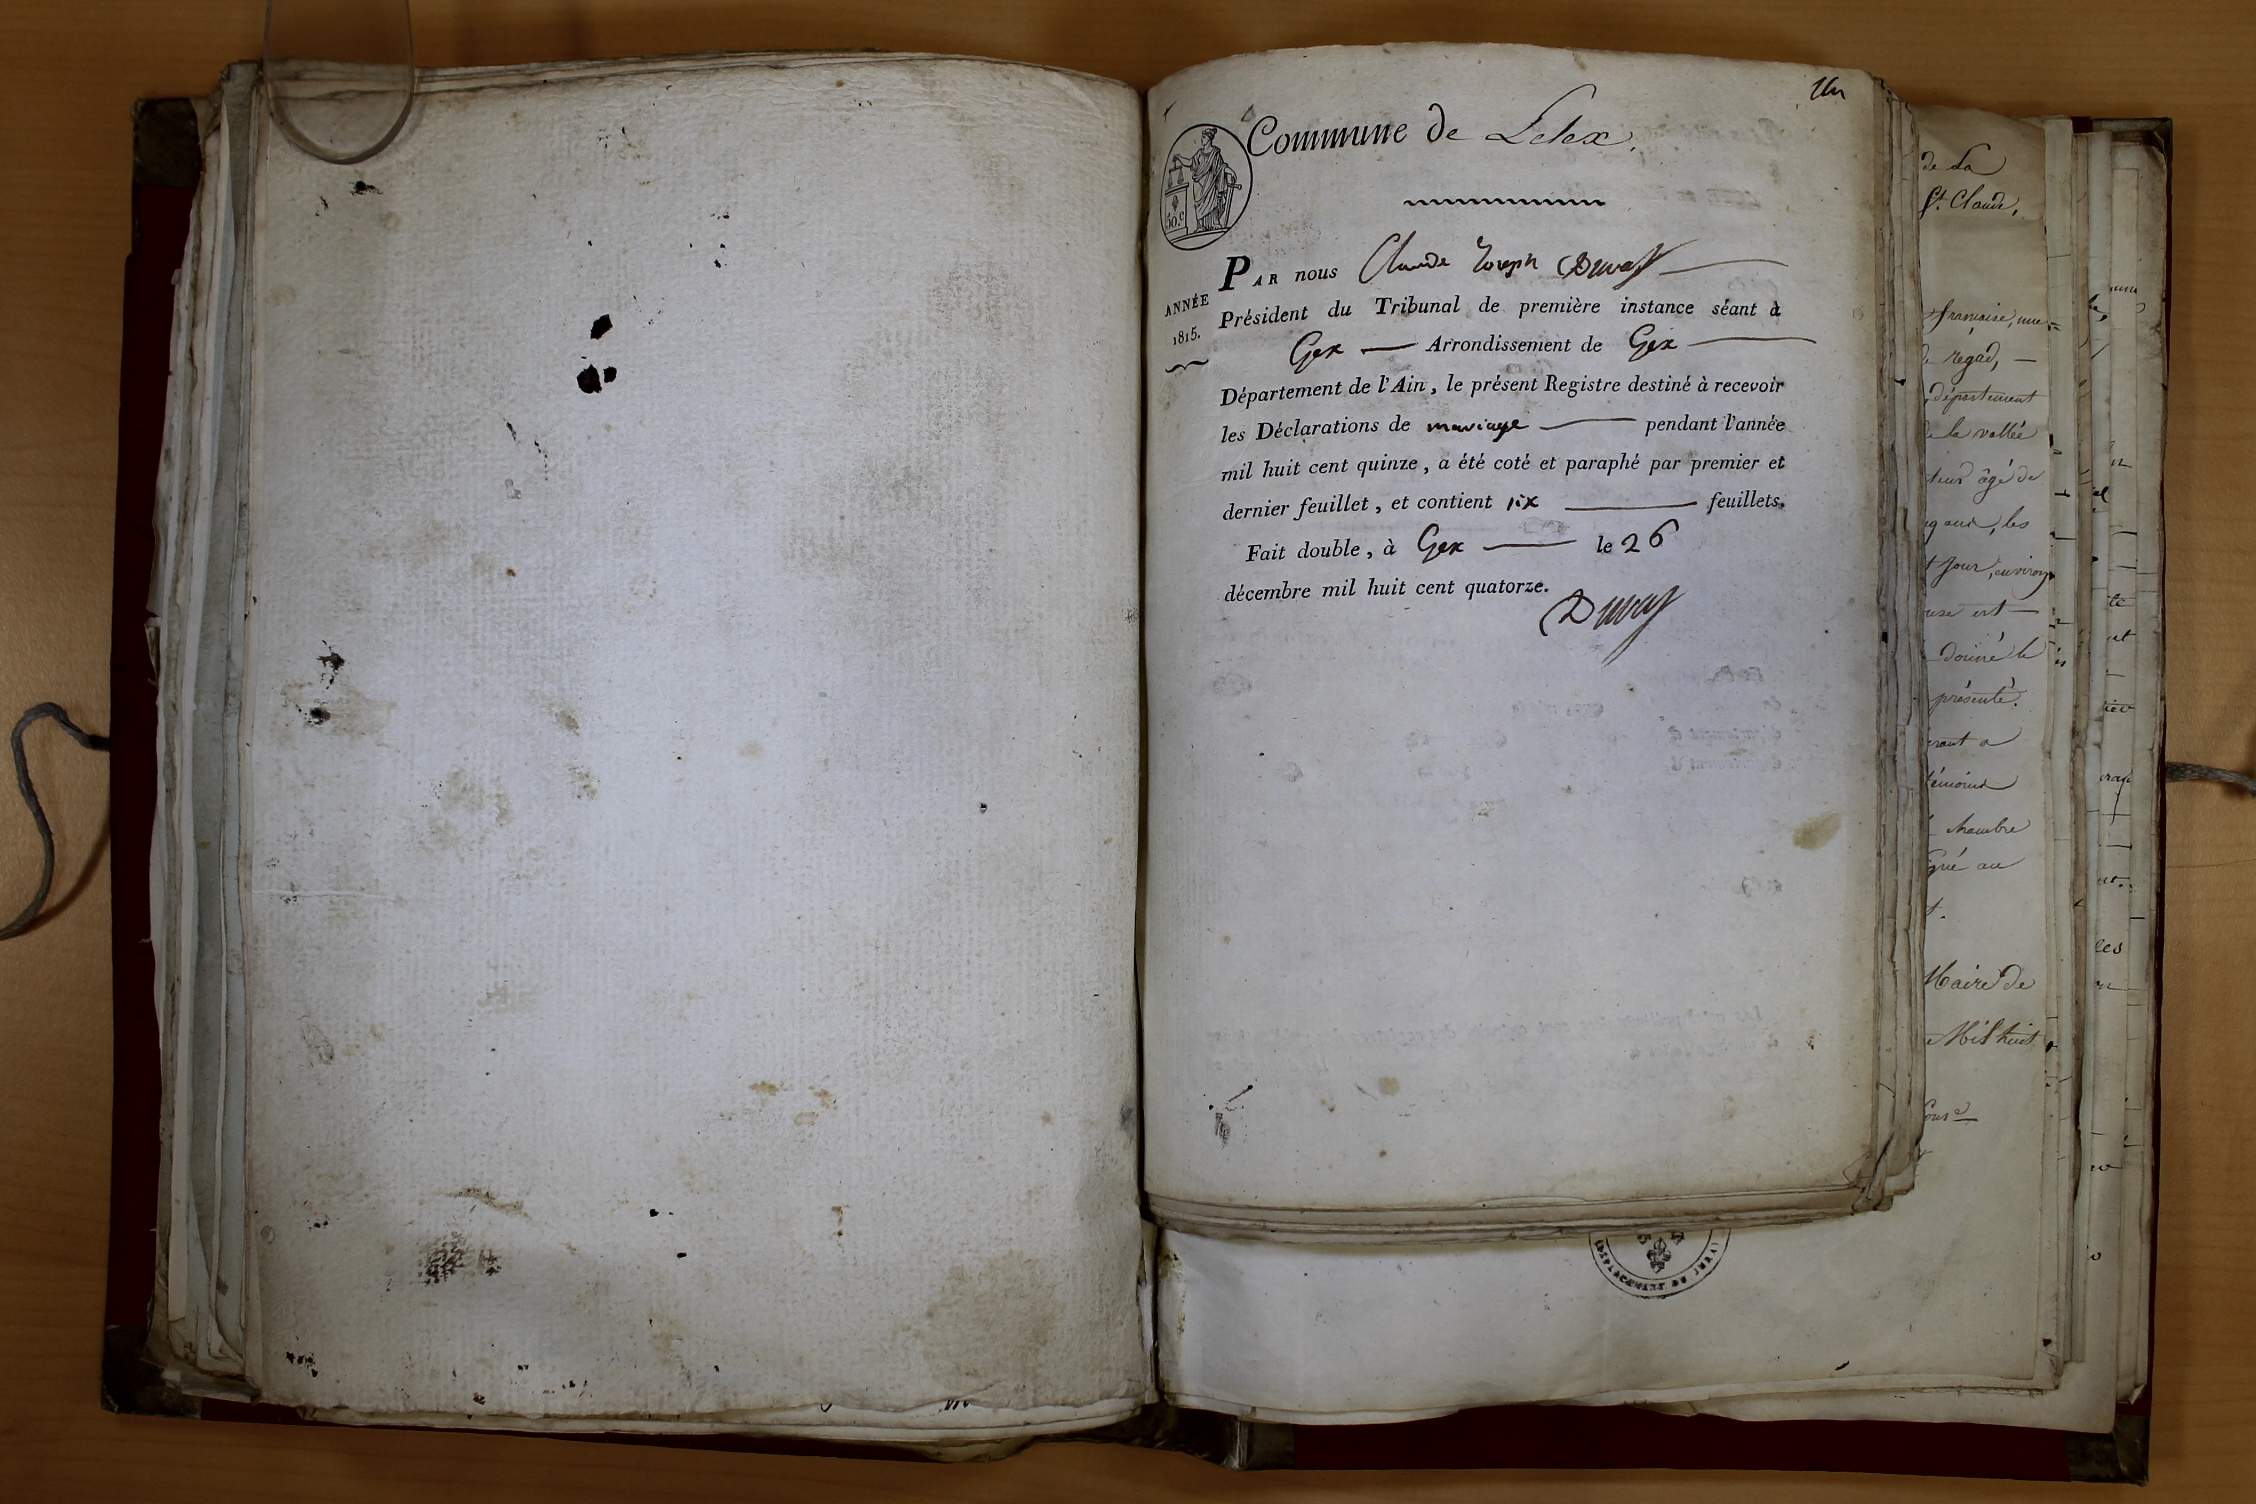 Un
Commune de Lelex.
50.c
ANNÉE
1815.
PAR nous Claude Joseph Duval
Président du Tribunal de première instance séant à
Gex Arrondissement de Gex
Département de l'Ain, le présent Registre destiné à recevoir
les Déclarations de mariage pendant l'année
mil huit cent quinze, a été coté et paraphé par premier et
dernier feuillet, et contient six feuillets.
Fait double, à Gex le 26
décembre mil huit cent quatorze.
de La
St. Claude,
française, une
regad, —
département
de la vallée
âgé de
les
jour, environ
est —
donné le
présenté.
a
témoins
chambre
au
Maire de
Mil huit